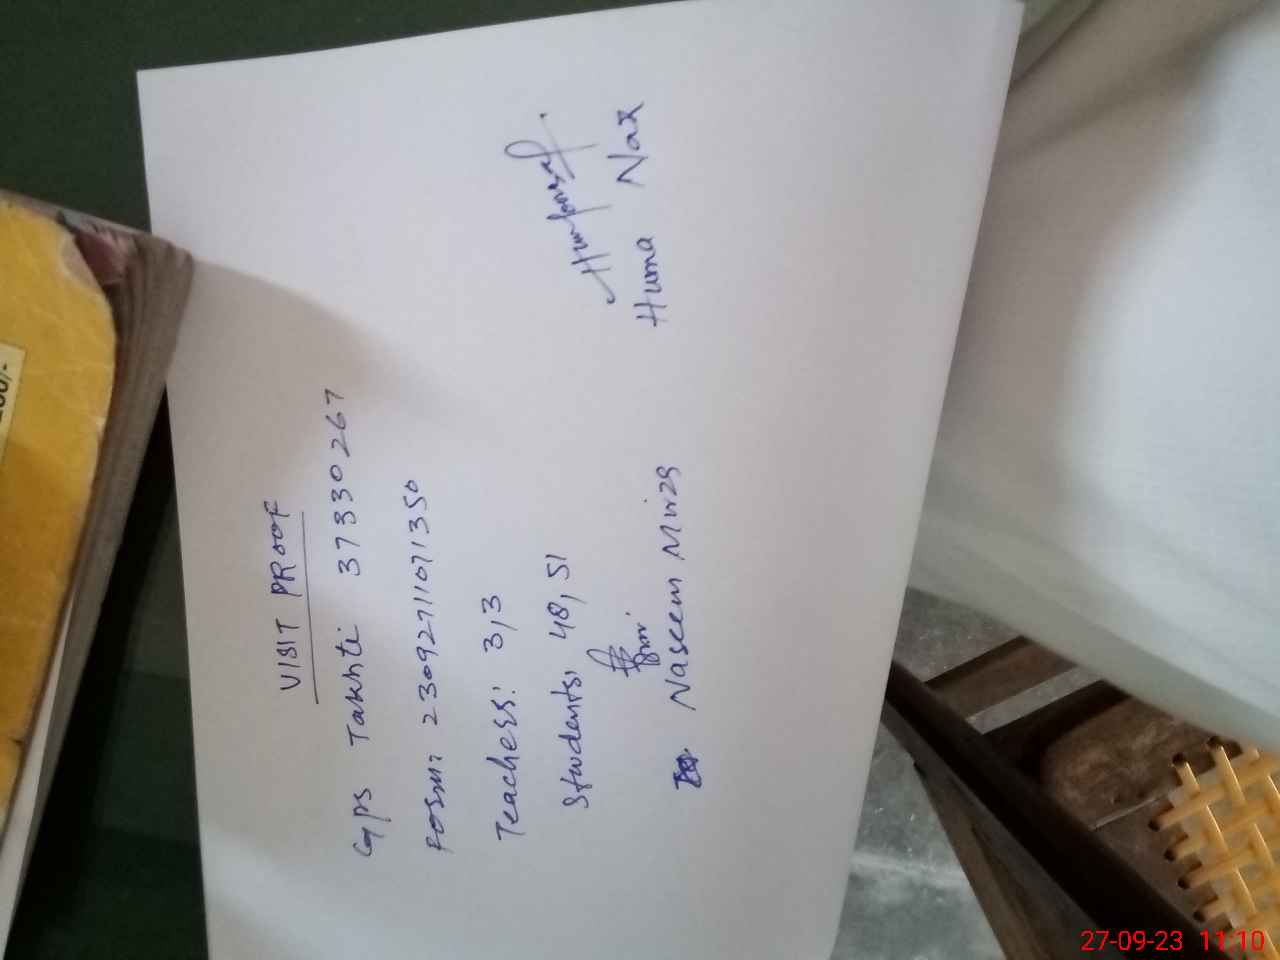 VISIT PROOF
GPS Takhti 37330267
Form: 23092711071350
Teachers: 3,3
Students, 48,51
Naseem Mirza
Huma Naz
27-09-23 11:10